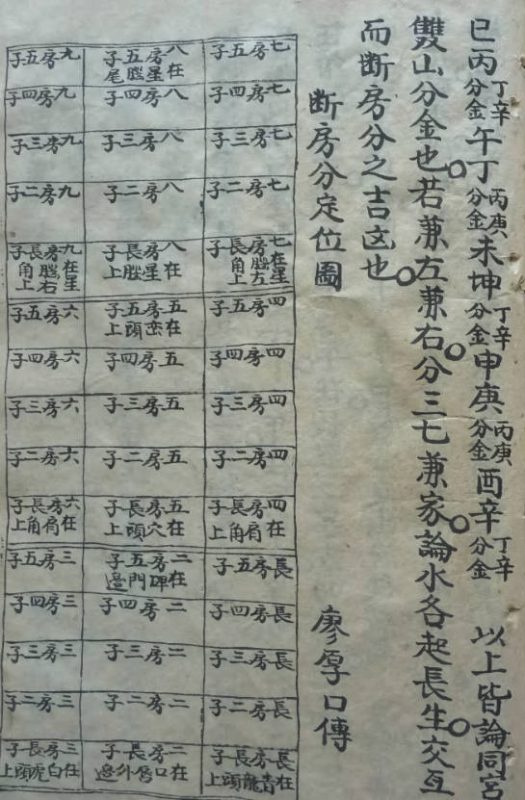 巳丙丁辛分金午丁丙庚分金未坤丁辛分金申庚丙庚分金酉辛丁辛分金 以上皆論同宮
雙山分金也。若兼左兼右。分三七兼家。論水各起長生。交互
而断房分之吉凶也。
断房分定位圖 廖厚口傳
七房五子
八房五子在星腦尾
九房五子
七房四子
八房四子
九房四子
七房三子
八房三子
九房三子
七房二子
八房二子
九房二子
七房長子在星腦左角上
八房長子在星腦上
九房長子在星腦右角上
四房五子
五房五子在峦頭上
六房五子
四房四子
五房四子
六房四子
四房三子
五房三子
六房三子
四房二子
五房二子
六房二子
四房長子在肩角上
五房長子在穴頭上
六房長子在肩角上
長房五子
二房五子在碑門邊
三房五子
長房四子
二房四子
三房四子
長房三子
二房三子
三房三子
長房二子
二房二子
三房二子
長房長子在青龍頭上
二房長子在口唇外邊
三房長子在白虎頭上